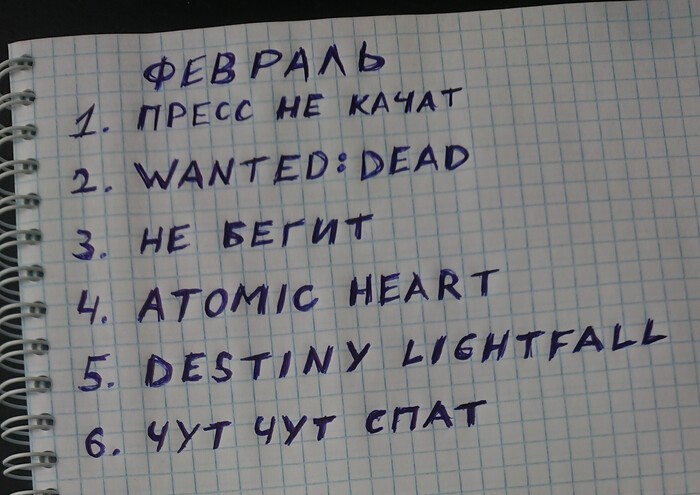 ФЕВРАЛЬ
1. ПРЕСС НЕ КАЧАТ
2. WANTED: DEAD
3. НЕ БЕГИТ
4. ATOMIC HEART
5. DESTINY LIGHTFALL
6. ЧУТ ЧУТ СПАТ